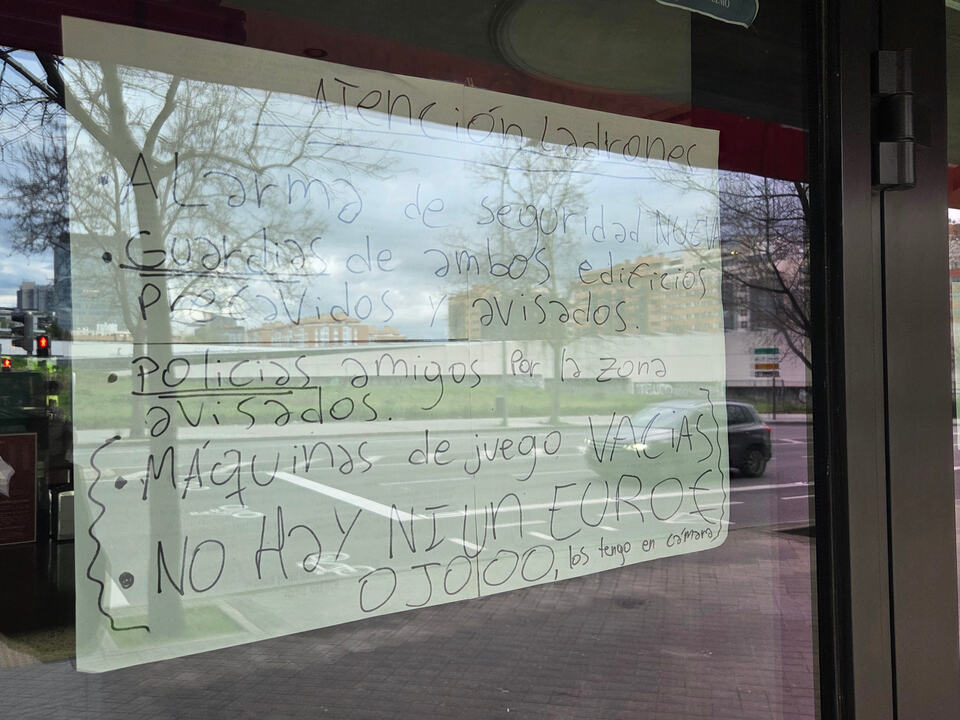 Atención Ladrones
• ALarma de seguridad NUEVA
• Guardias de ambos edificios
precavidos y avisados.
• policias amigos por la zona
avisados.
• MÁquinas de juego VACIAS
• NO HaY NI UN EURO €
OJOOO, los tengo en cámaras